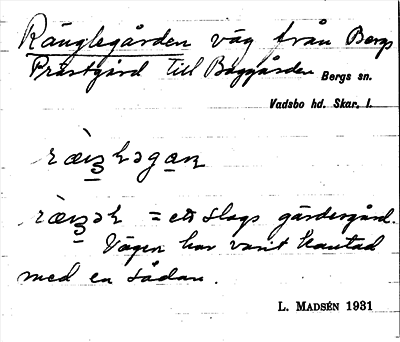 Ränglegården väg från Bergs
Prästgård till Baggården Bergs sn.
Vadsbo hd. Skar. l.
= ett slags gärdesgård.
Vägen har varit kantad
med en sådan.
L. MADSÉN 1931